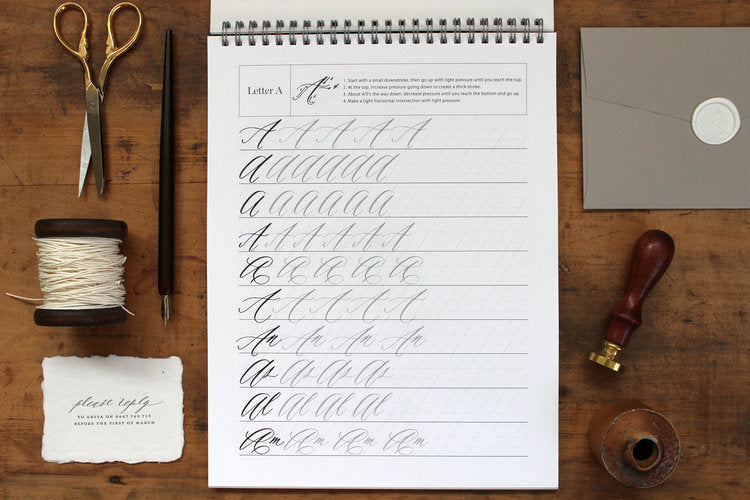 Letter A
1. Start with a small downstroke, then go up with light pressure until you reach the top.
2. At the top, increase pressure going down to create a thick stroke.
3. About 4/5's the way down, decrease pressure until you reach the bottom and go up.
4. Make a light horizontal intersection with light pressure.
A A A A A
a a a a a a
a a a a a
A A A A A A
A A A A A
A A A A A
An An An An
As As As As
Al Al Al Al
Am Am Am Am
please reply
TO ANITA ON
BEFORE THE FIRST OF MARCH